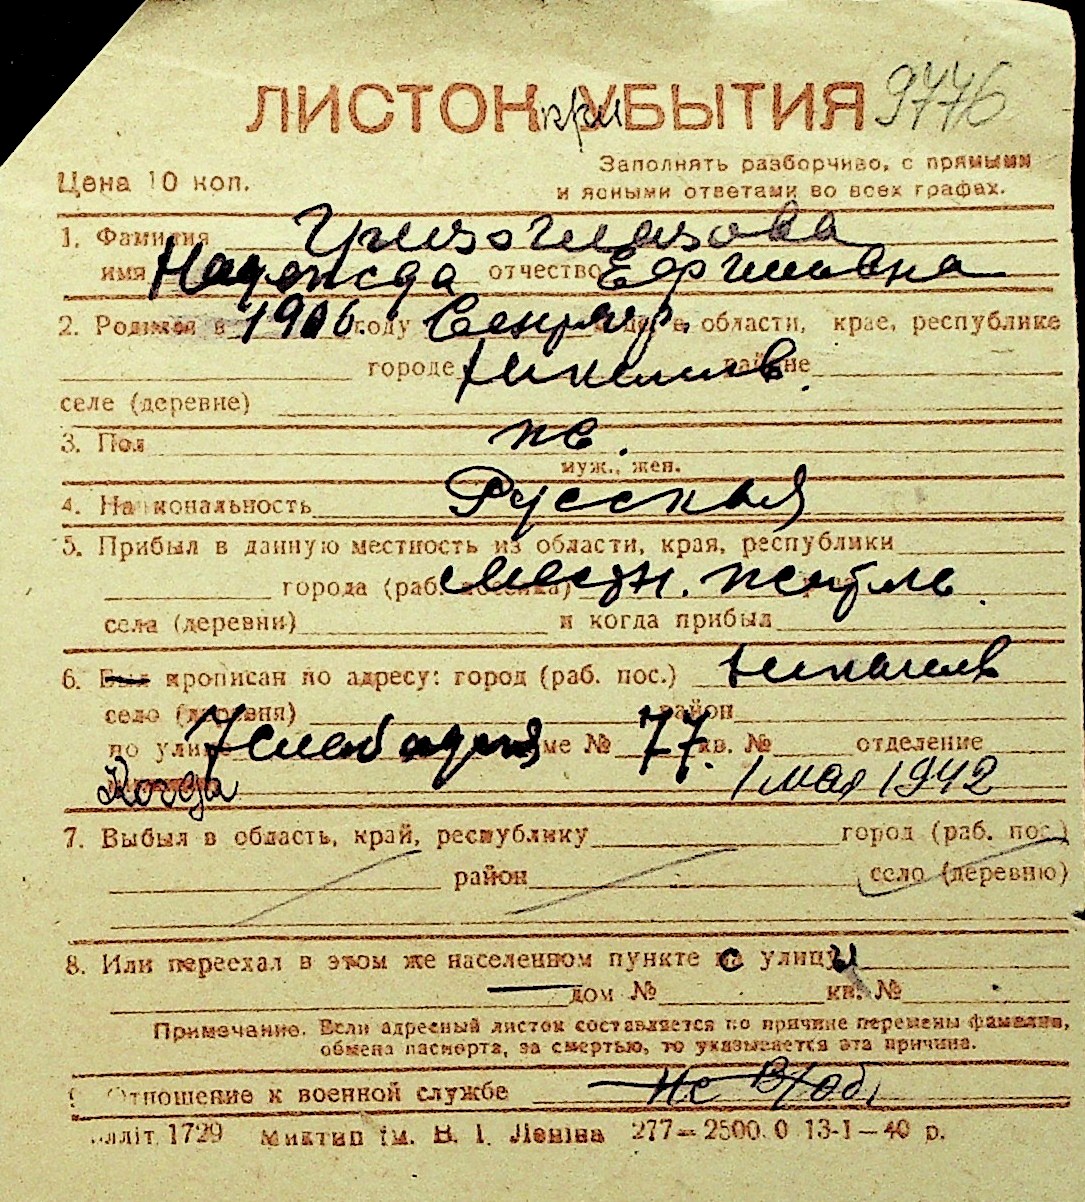 ЛИСТОК при УБЫТИЯ 9776
Цена 10 коп.
Заполнять разборчиво, с прямыми
и ясными ответами во всех графах.
1. Фамилия
имя Надежда отчество
2. Родился в 1906 году области, крае, республике
городе Николаев районе
селе (деревне)
3. Пол ж.
муж., жен.
4. Национальность Русская
5. Прибыл в данную местность из области, края, республики
города (раб. поселка) местн. житель
села (деревни) и когда прибыл
6. Был прописан по адресу: город (раб. пос.) Николаев
село (деревня) район
по улице доме № 77 кв. № отделение
Когда 1 мая 1942
7. Выбыл в область, край, республику город (раб. пос.)
район село (деревню)
8. Или переехал в этом же населенном пункте с улицы
дом № кв. №
Примечание. Если адресный листок составляется по причине перемены фамилии,
обмена паспорта, за смертью, то указывается эта причина.
Отношение к военной службе не в/об.
1729 Миктип ім. В. І. Леніна 277—2500.0 13-I—40 р.